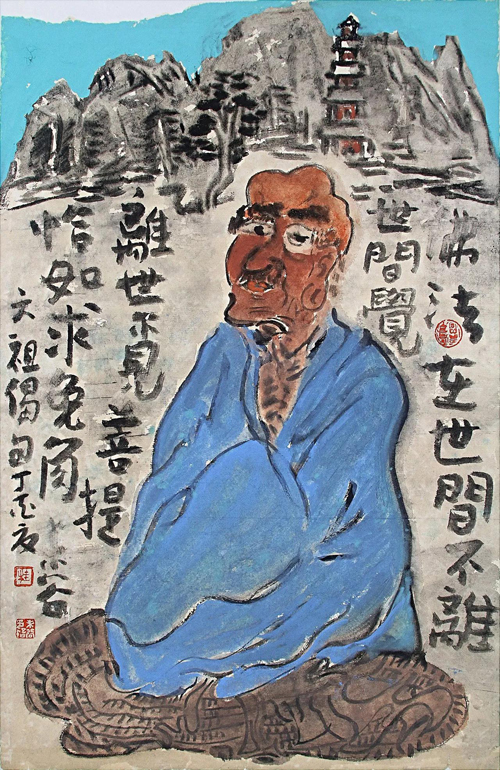 佛法在世間不離
世間覺
離世覔菩提
恰如求兔角
六祖偈句丁酉夏